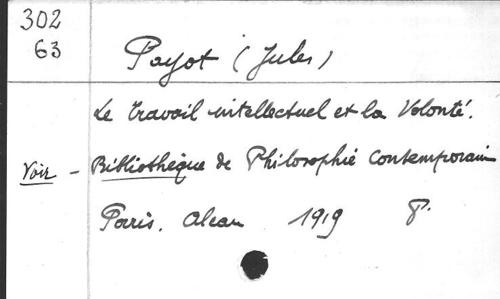 302
63
Payot (Jules)
Le Travail intellectuel et la Volonté.
Voir - Bibliothèque de Philosophie Contemporain
Paris. Alcan 1919 8°.